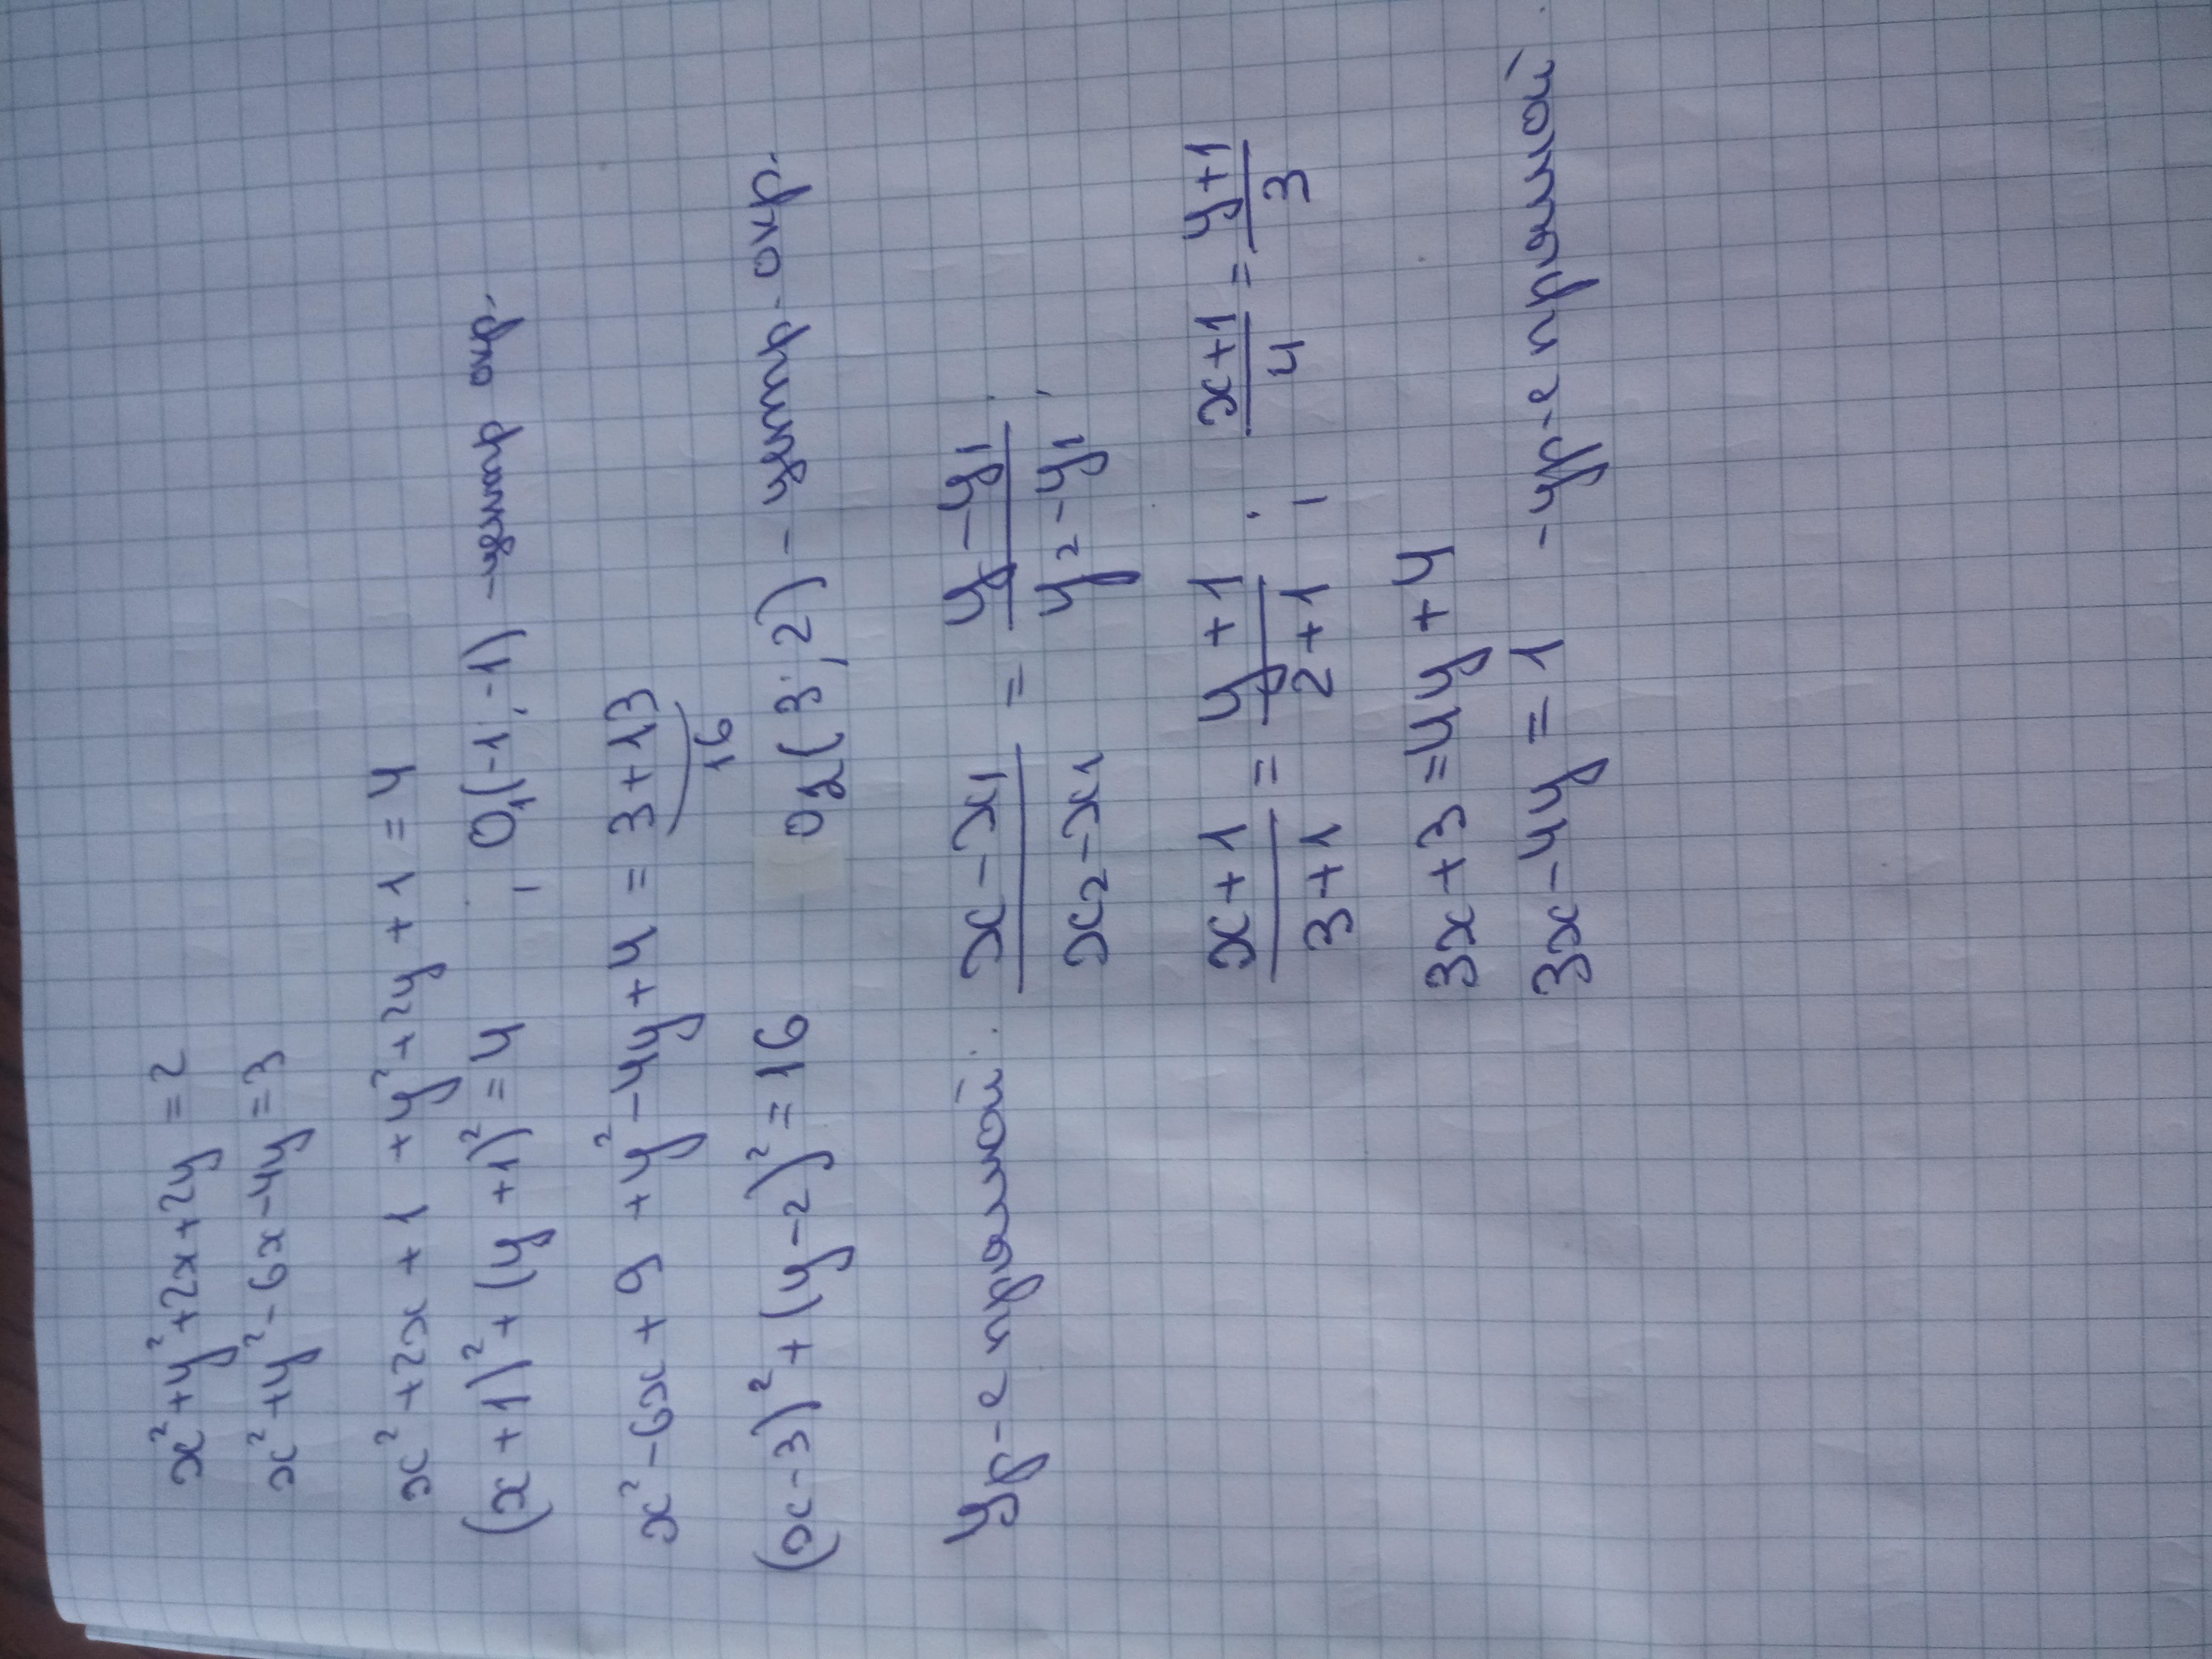 x²+y²+2x+2y=2
x²+y²-6x-4y=3
x²+2x+1+y²+2y+1=4
(x+1)²+(y+1)²=4, O₁(-1;-1) -центр окр.
x²-6x+9+y²-4y+4=3+13
16
(x-3)²+(y-2)²=16 O₂(3;2) - центр. окр.
Ур-е прямой: (x-x₁)/(x₂-x₁) = (y-y₁)/(y₂-y₁);
(x+1)/(3+1) = (y+1)/(2+1); (x+1)/4 = (y+1)/3
3x+3=4y+4
3x-4y=1 -ур-е прямой.